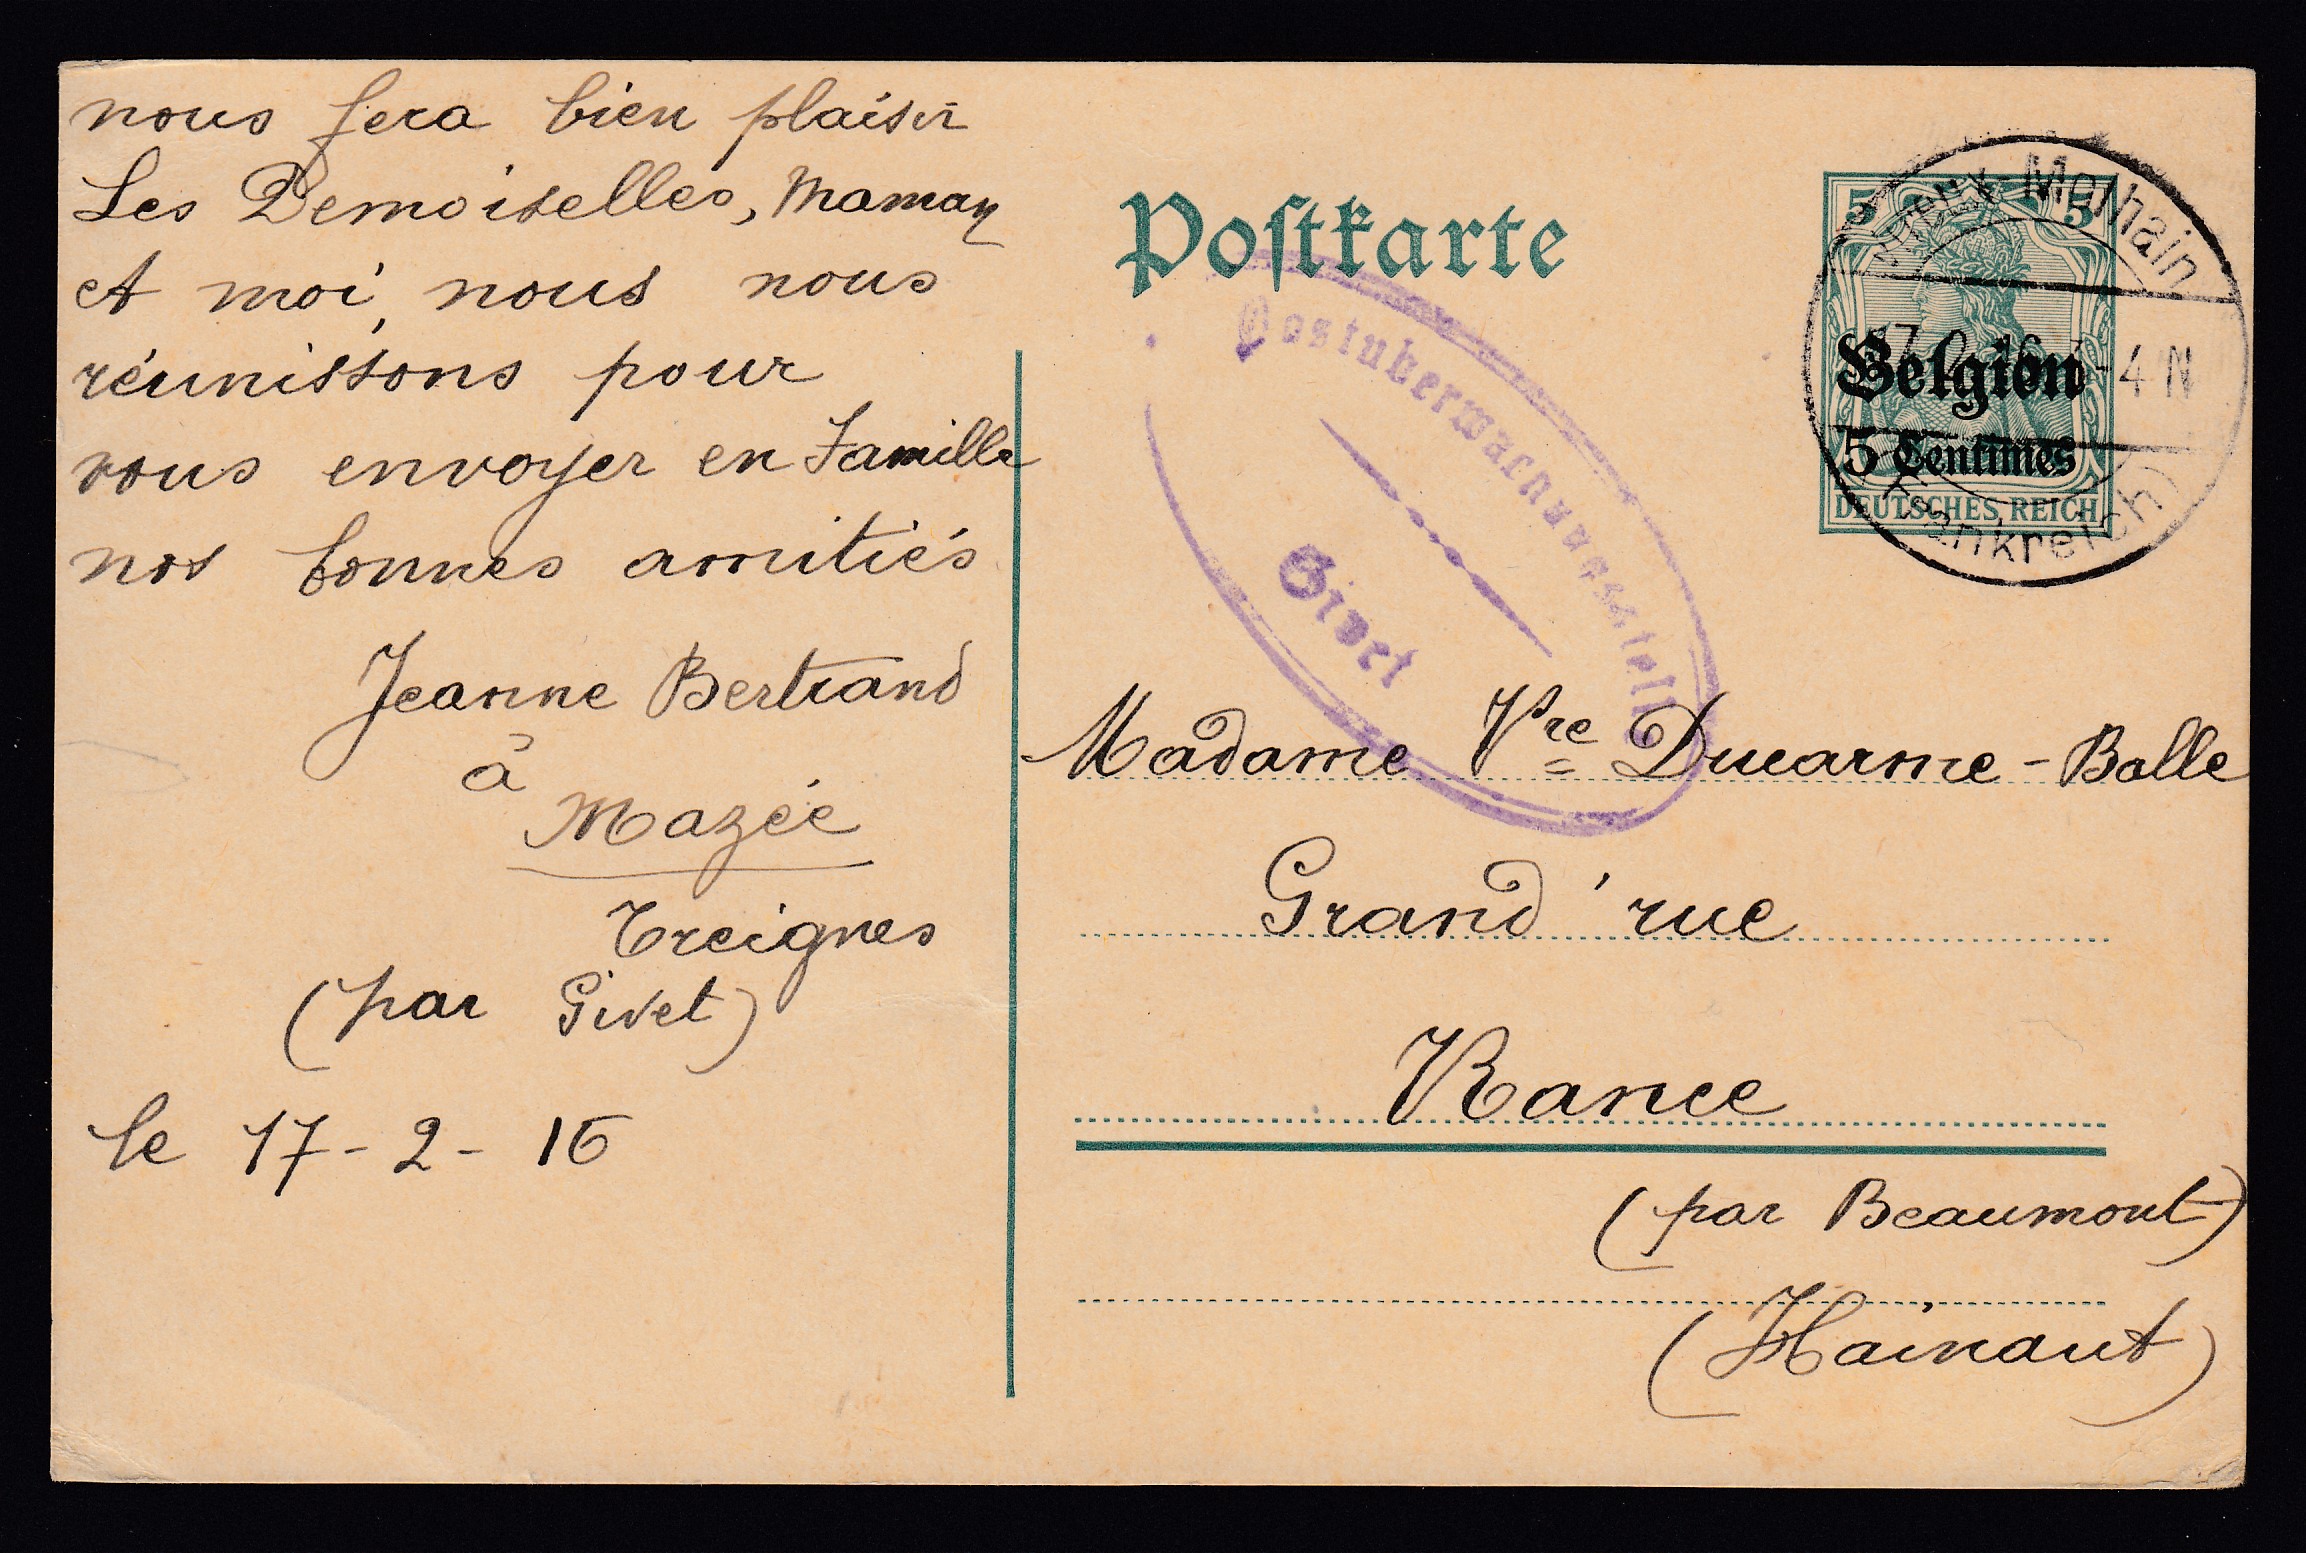 nous fera bien plaisir
Les Demoiselles, Maman
et moi, nous nous
réunissons pour
vous envoyer en Famille
nos bonnes amitiés
Jeanne Bertrand
à
Mazée
Treignes
(par Givet)
le 17-2-16
Postkarte
5 5
Belgien
5 Centimes
DEUTSCHES REICH
Vireux-Molhain
4 N
(Frankreich)
Postüberwachungsstelle
Givet
Madame Vve Ducarme-Balle
Grand'rue
Rance
(par Beaumont)
(Hainaut)